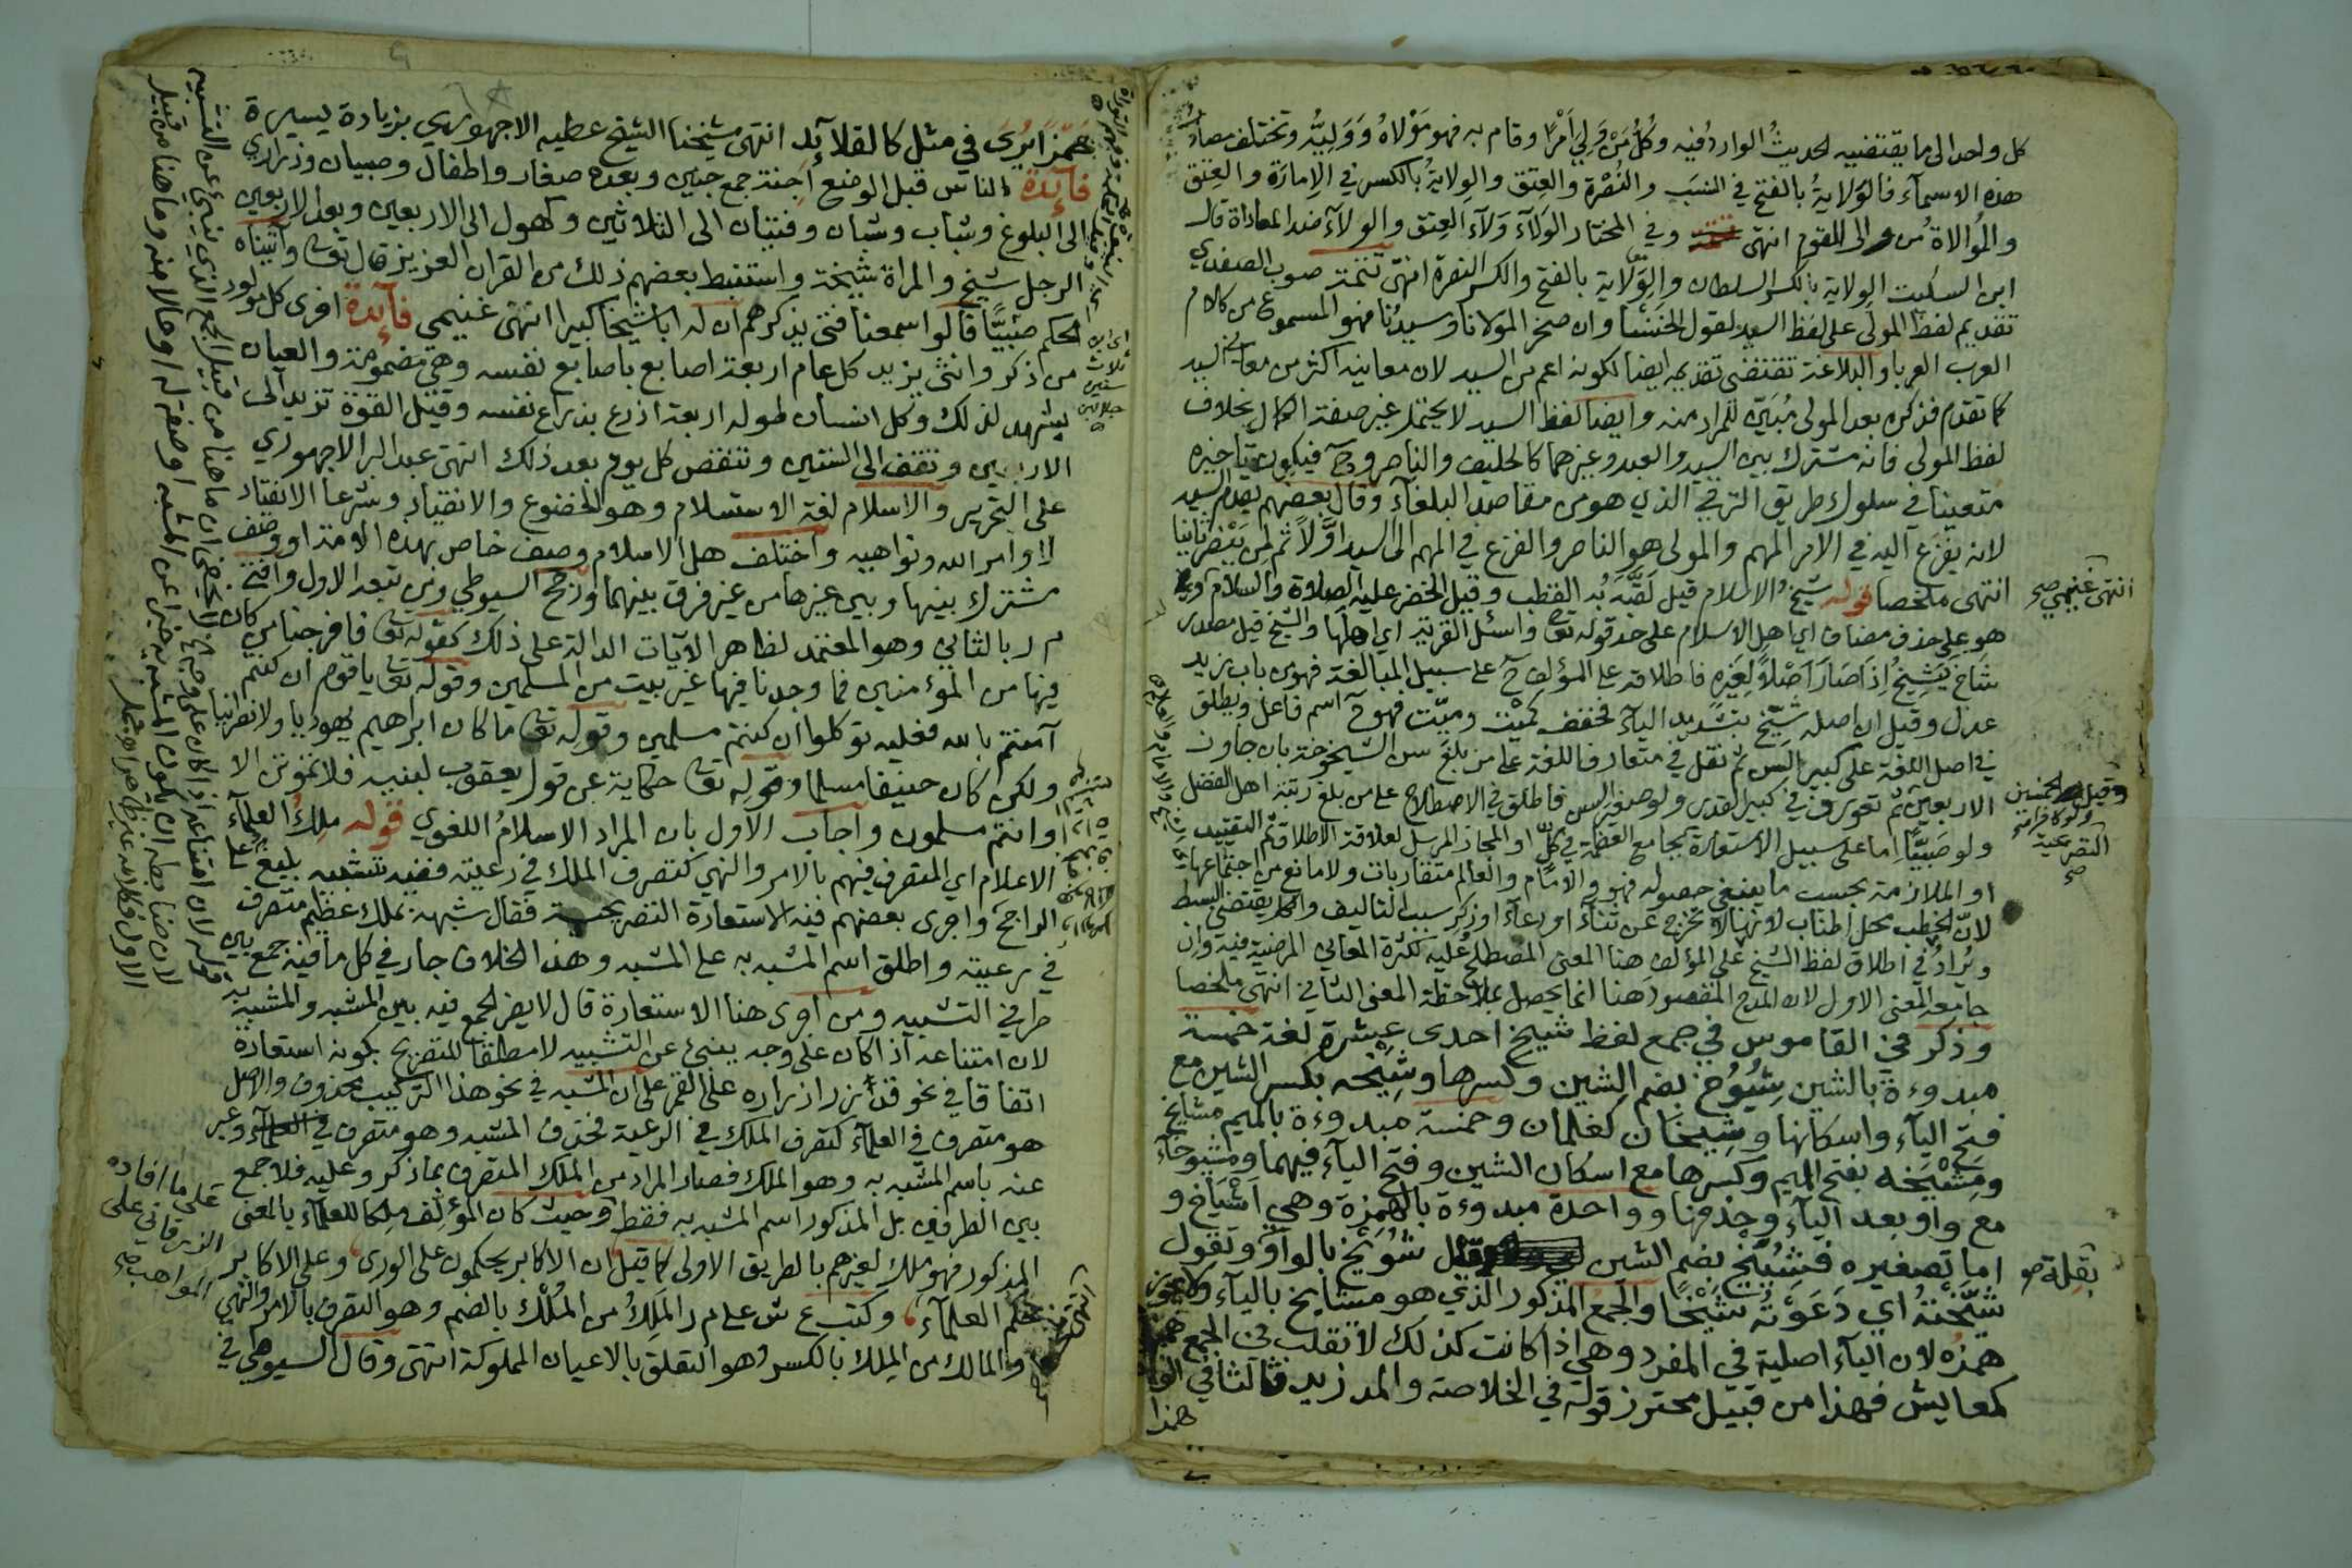 كل واحد الى ما يقتضيه الحديثُ الوارد فيه وكُلُّ مَنْ وَلِيَ أمْرًا وقام به فهو مَوْلاهُ وَوَليُّه وتختلف مصادر
هذه الاسماء فالوَلايةُ بالفتح في النسَبِ والنُصْرة والعِتق والوِلايةُ بالكسر في الإمارَة والعِتق
والمُوالاة من والى القوم انتهى وفي المختار الوَلآءُ وَلآءُ العِتق والولآءُ ضد المعاداة قال
ابن السكيت الوِلاية بالكسر السلطان والوِلاية بالفتح والكسر النصرة انتهى تتمة صوب الصفدي
تقديم لفظ المولى على لفظ السيد لقول الخنسا وان صخر المولانا وسيدُنا فهو المسموع من كلام
العرب العربا والبلاغة تقتضي تقديمه ايضا لكونه اعم من السيد لان معانيه اكثر من معاني السيد
كما تقدم فذكره بعد المولى مُبَيّن للمراد منه وايضا لفظ السيد لا يحتمل غير صفة الكمال بخلاف
لفظ المولى فانه مشترك بين السيد والعبد وغيرهما كالحليف والناصر وح فيكون تاخيره
متعينا في سلوك طريق الترقي الذي هو من مقاصد البلغآء وقال بعضهم يقدم السيد
لانه يفزع اليه في الامر المهم والمولى هو الناصر والفزع في المهم الى السيد اوّلاً ثم لمن ينصر ثانيا
انتهى ملخصا قوله شيخ الاسلام قيل لَقَبُه به القطب وقيل الخضر عليه الصلاة والسلام
هو على حذف مضاف اي اهل الاسلام على حد قوله تع واسئل القرية اي اهلها والشيخ قيل مصدر
شَاخَ يَشِيخُ إذا صَارَ أصْلاً لغيره فاطلاقه على المؤلف ح على سبيل المبالغة فهو من باب زيد
عدل وقيل ان اصله شَيّخ بتشديد اليآء فخفف كمَيْت وميّت فهو ح اسم فاعل ويطلق
في اصل اللغة على كبير السن ثم نقل في متعارف اللغة على من بلغ سن الشيخوخة بان جاوز
الاربعين ثم تعورف في كبير القدر ولو صغير السن فاطلق في الاصطلاح على من بلغ رتبة اهل الفضل
ولو صَبيًّا اما على سبيل الاستعارة بجامع العظمة في كلٍّ او المجاز المرسل لعلاقة الاطلاق ثم التقييد
او الملازمة بحسب ما ينبغي حصوله فهو والامام والعالم متقاربات ولا مانع من اجتماعها
لانّ الخطب محل اطناب لانها لا تخرج عن ثناء او دعآء او ذكر سبب التاليف وكل يقتضي البسط
ويُرادُ في اطلاق لفظ الشيخ على المؤلف هنا المعنى المصطلح عليه لكثرة المعاني المرضية فيه وان
جامعه المعنى الاول لان المدح المقصود هنا انما يحصل بملاحظة المعنى الثاني انتهى ملخصا
وذكر في القاموس في جمع لفظ شيخ احدى عشرة لغة خمسة
مبدوءة بالشين شيُوُخ بضم الشين وكسرها وشِيخه بكسر الشين مع
فتح اليآء واسكانها وشِيخَان كغلمان وخمسة مبدوءة بالميم مشايخ
ومَشْيَخه بفتح الميم وكسرها مع اسكان الشين وفتح اليآء فيهما ومشيوخآء
مع واو بعد اليآء وحذفها وواحدة مبدوءة بالهمزة وهي اشْيَاخ و
اما تصغيره فشُيَيْخ بضم الشين قيل شوَيْخ بالواو وتقول
شيَّخْتهُ اي دَعَوْتهُ شَيْخًا والجمع المذكور الذي هو مشايخ باليآء ولا يجوز
همزه لان اليآء اصلية في المفرد وهي اذا كانت كذلك لا تقلب في الجمع همزة
كمعايش فهذا من قبيل محترز قوله في الخلاصة والمد زيد ثالثا في الوا
هذا
انتهى غنيمي صح
وقيل الخمسين
ولو كافرا
بقلة صح
همزًا يُرَى في مثل كالقلآئد انتهى شيخنا الشيخ عطيه الاجهوري بزيادة يسيرة
فآئدة الناس قبل الوضع أجنة جمع جنين وبعده صغار واطفال وصبيان وذراري
الى البلوغ وشاب وشبان وفتيان الى الثلاثين وكهول الى الاربعين وبعد الاربعين
الرجل شيخ والمراة شيخة واستنبط بعضهم ذلك من القران العزيز قال تع وآتيناه
الحكم صَبيًّا قالوا سمعنا فتى يذكرهم ان له ابا شيخا كبيرا انتهى غنيمي فآئدة اخرى كل مولود
من ذكر وانثى يزيد كل عام اربعة اصابع باصابع نفسه وهي مضمومة والعيان
يشهد لذلك وكل انسان طوله اربعة اذرع بذراع نفسه وقيل القوة تزيد الى
الاربعين وتقف الى الستين وتنقص كل يوم بعد ذلك انتهى عبد البر الاجهوري
على التحرير والاسلام لغة الاستسلام وهو الخضوع والانقياد وشرعا الانقياد
لاوامر الله ونواهيه واختلف هل الاسلام وصف خاص بهذه الامة او وصف
مشترك بينها وبين غيرها من غير فرق بينهما ورجح السيوطي ومن تبعه الاول وافتى
م ر بالثاني وهو المعتمد لظاهر الآيات الدالة على ذلك كقوله تع فاخرجنا من كان
فيها من المؤمنين فما وجدنا فيها غير بيت من المسلمين وقوله تع يا قوم ان كنتم
آمنتم بالله فعليه توكلوا ان كنتم مسلمين وقوله تع ما كان ابراهيم يهوديا ولا نصرانيا
ولكن كان حنيفا مسلما وقوله تع حكاية عن قول يعقوب لبنيه فلا تموتن الا
وانتم مسلمون واجاب الاول بان المراد الاسلامُ اللغوي قوله ملِكُ العلمآء
الاعلام اي المتصرف فيهم بالامر والنهي كتصرف الملك في رعيته ففيه تشبيه بليغ على
الراجح واجرى بعضهم فيه الاستعارة التصريحية فقال شبهه بملك عظيم متصرف
في رعيته واطلق اسم المشبه به على المشبه وهذا الخلاف جار في كل ما فيه جمع بين
طرفي التشبيه ومن اجرى هنا الاستعارة قال لا يضر الجمع فيه بين المشبه والمشبه به
لان امتناعه اذا كان على وجه ينبئ عن التشبيه لا مطلقا للتصريح بكونه استعارة
اتفاقا في نحو قد زر ازراره على القمر على ان المشبه في نحو هذا التركيب محذوف والاصل
هو متصرف في العلمآء كتصرف الملك في الرعية فحذف المشبه وهو متصرف في العلمآء وعبر
عنه باسم المشبه به وهو الملك فصار المراد من الملك المتصرف بما ذكر وعليه فلا جمع
بين الطرفين بل المذكور اسم المشبه به فقط وحيث كان المؤلف ملكا للعلمآء بالمعنى
المذكور فهو ملك لغيرهم بالطريق الاولى كما قيل ان الاكابر يحكمون على الورى وعلى الاكابر
تحكم العلمآء وكتب ع ش على م ر المَلِكُ من المُلك بالضم وهو التصرف بالامر والنهي
والمالك من المِلك بالكسر وهو التعلق بالاعيان المملوكة انتهى وقال السيوطي في
على ما افاده
الزرقاني على
المواهب صح